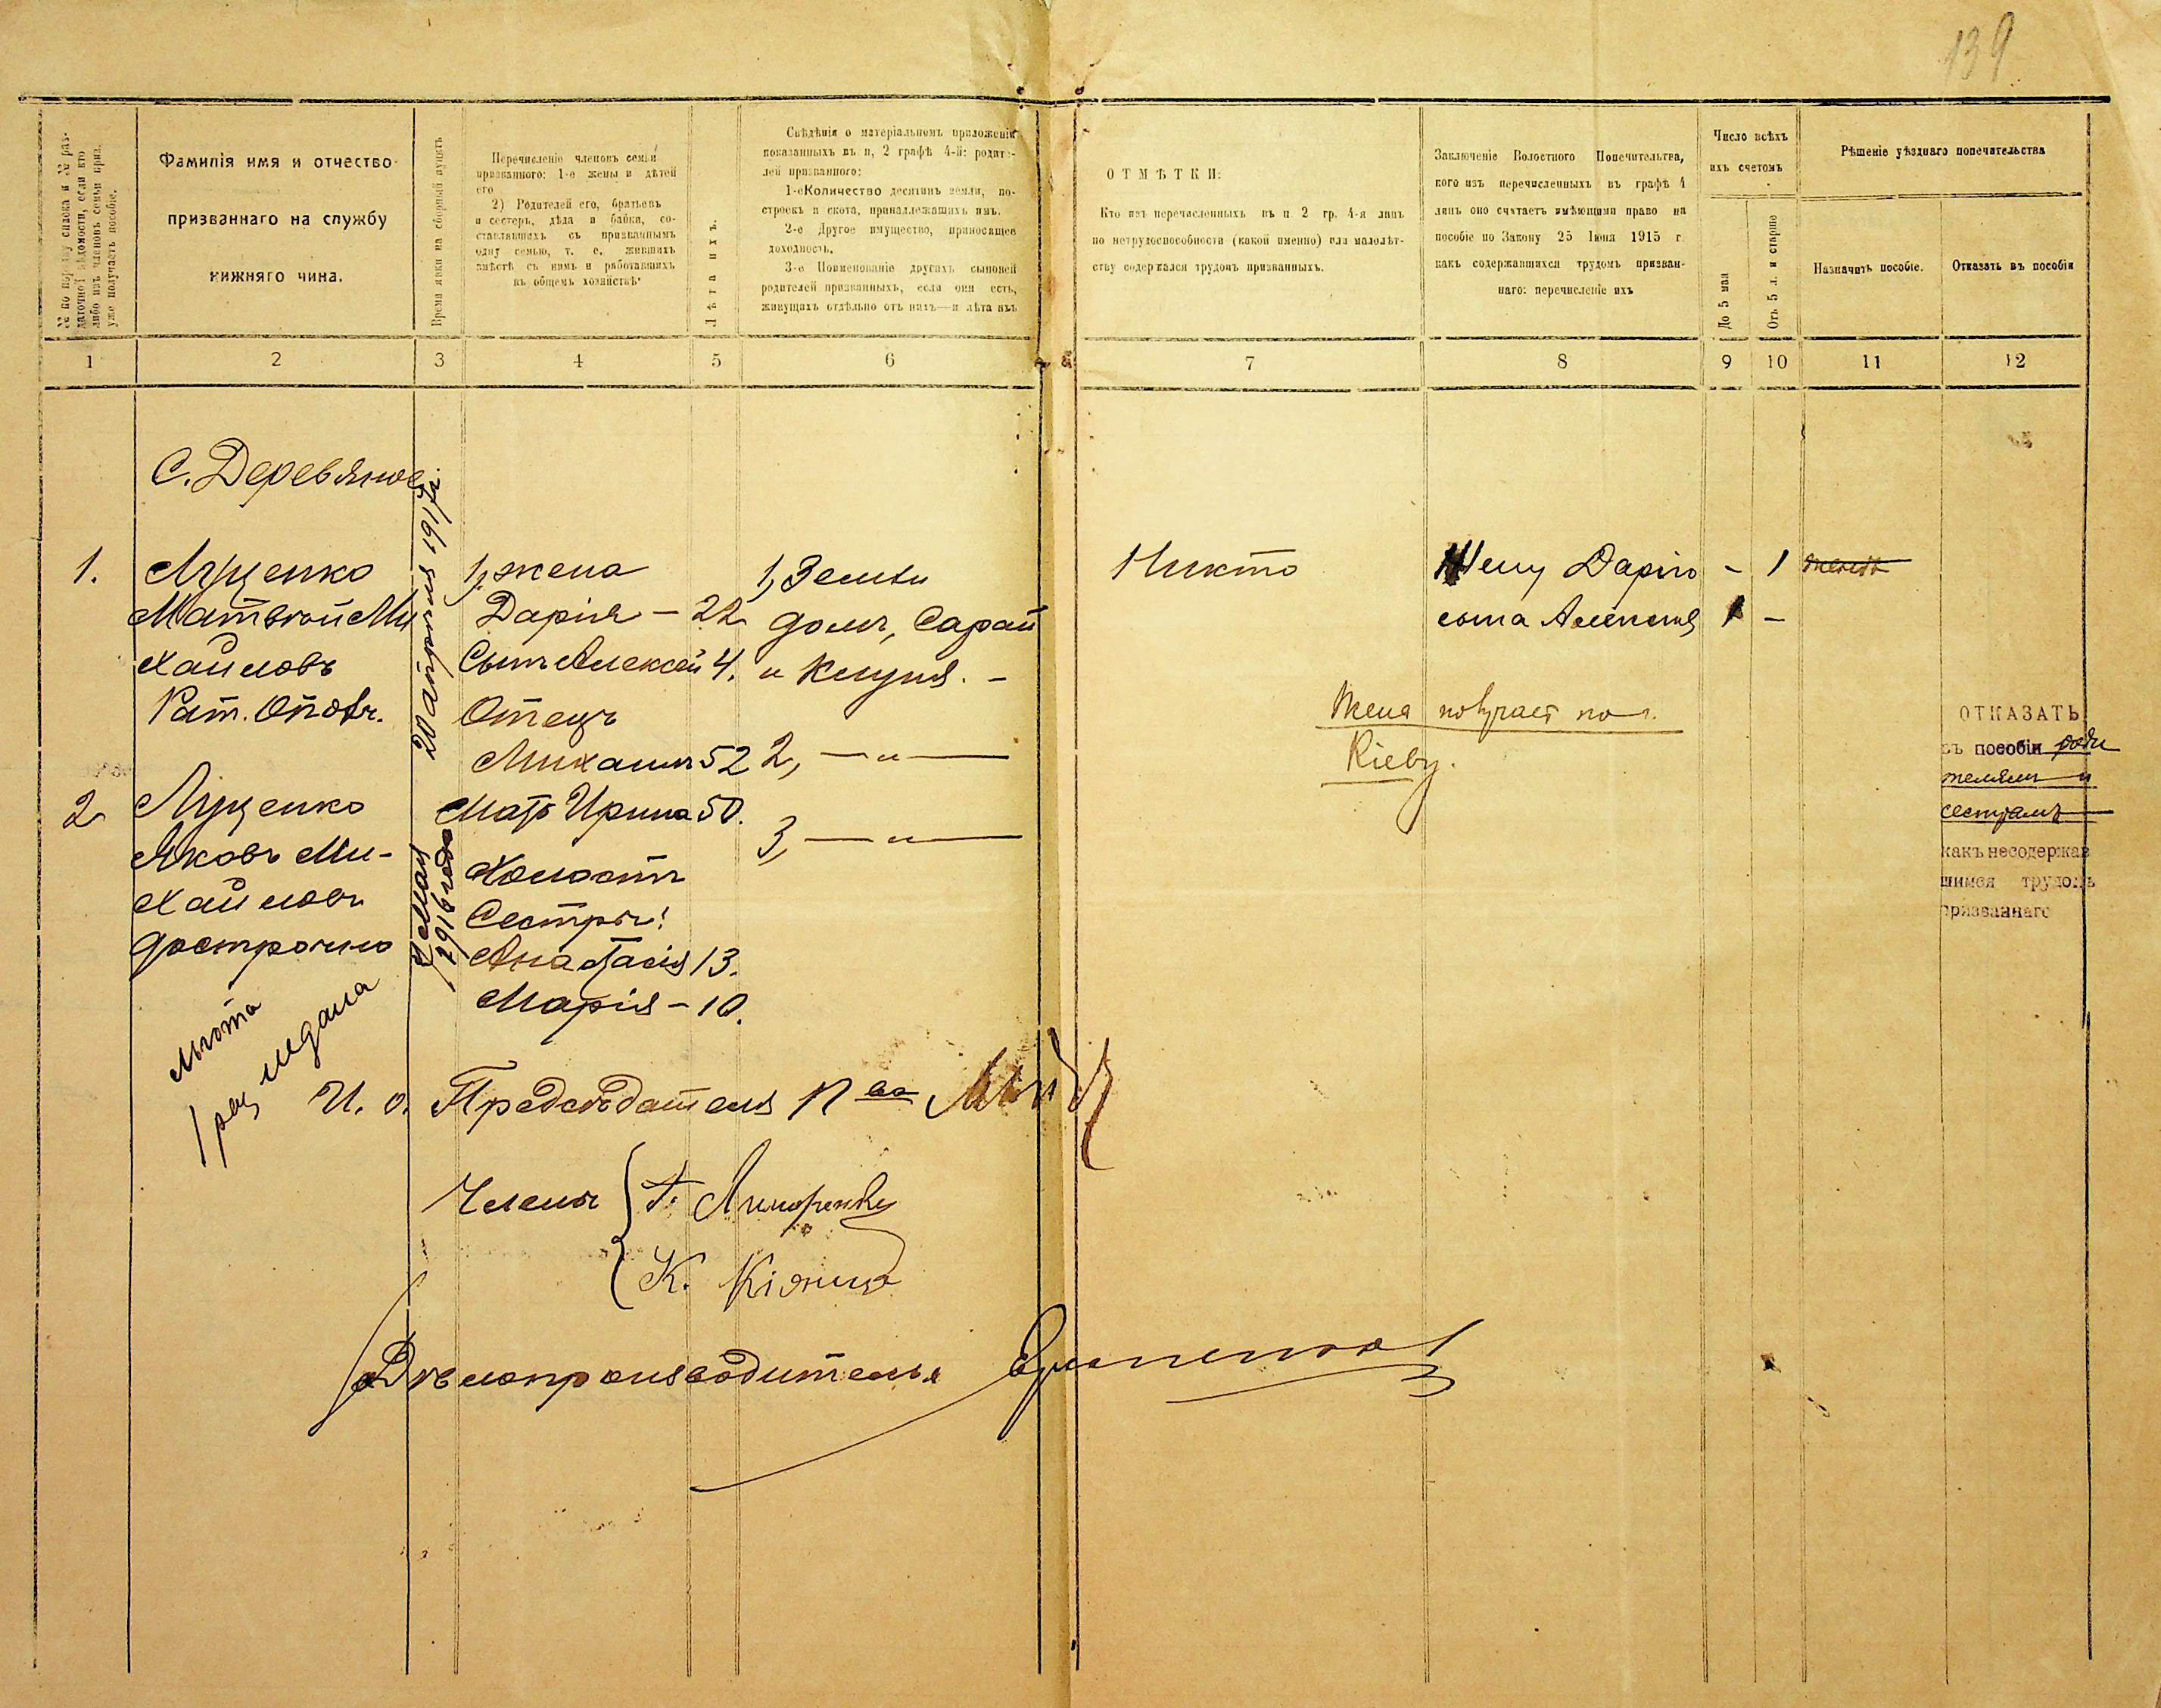 139
№ по порядку списка и № раз-
даточной вѣдомости, если кто
либо изъ членовъ семьи приз.
уже получаетъ пособіе.
Фамилія имя и отчество
призваннаго на службу
нижняго чина.
Время явки на сборный пунктъ
Перечисленіе членовъ семьи
призваннаго: 1-е жены и дѣтей
его
2) Родителей его, братьевъ
и сестеръ, дѣда и бабки, со-
ставлявшихъ съ призваннымъ
одну семью, т. е. жившихъ
вмѣстѣ съ нимъ и работавшихъ
въ общемъ хозяйствѣ
Лѣта ихъ.
Свѣдѣнія о матеріальномъ приложеніи
показанныхъ въ п, 2 графѣ 4-й: родите-
лей призваннаго:
1-е Количество десятинъ земли, по-
строекъ и скота, принадлежащихъ имъ.
2-е Другое имущество, приносящее
доходность.
3-е Поименованіе другихъ сыновей
родителей призванныхъ, если они есть,
живущихъ отдѣльно отъ нихъ—и лѣта ихъ
ОТМѢТКИ:
Кто изъ перечисленныхъ въ п. 2 гр. 4-я лицъ
по нетрудоспособности (какой именно) или малолѣт-
ству содержался трудомъ призванныхъ.
Заключеніе Волостного Попечительтва,
кого изъ перечисленныхъ въ графѣ 4
лицъ оно считаетъ имѣющими право на
пособіе по Закону 25 Іюня 1915 г
какъ содержавшихся трудомъ призван-
наго: перечисленіе ихъ
Число всѣхъ
ихъ счетомъ
До 5 мая
Отъ 5 л. и старше
Рѣшеніе уѣзднаго попечательства
Назначить пособіе.
Отказать въ пособіи
1 2 3 4 5 6 7 8 9 10 11 12
С. Деревяное
1. Луценко
Матвѣй Ми
хайловъ
Рат. Ополч.
1, жена
Дарія — 22
Сынъ Алексѣй 4.
Отецъ
Михаилъ 52
Мать Ирина 50.
1, Земли
домъ, Сарай
и Клуня. —
2, — „ —
3, — „ —
Никто
Жену Дарію — 1
сына Алексѣя 1 —
Жена получает
Кіеву.
ОТКАЗАТЬ
въ пособіи роди
телямъ и
сестрамъ
какъ несодержав
шимся трудомъ
призваннаго
2 Луценко
Яковъ Ми-
хайловъ
досрочно
1916 года
Холостъ
Сестры:
Анастасія 13.
Марія — 10.
льгота
И. о. Предсѣдателя П-ва
Члены
К.
Дѣлопроизводитель